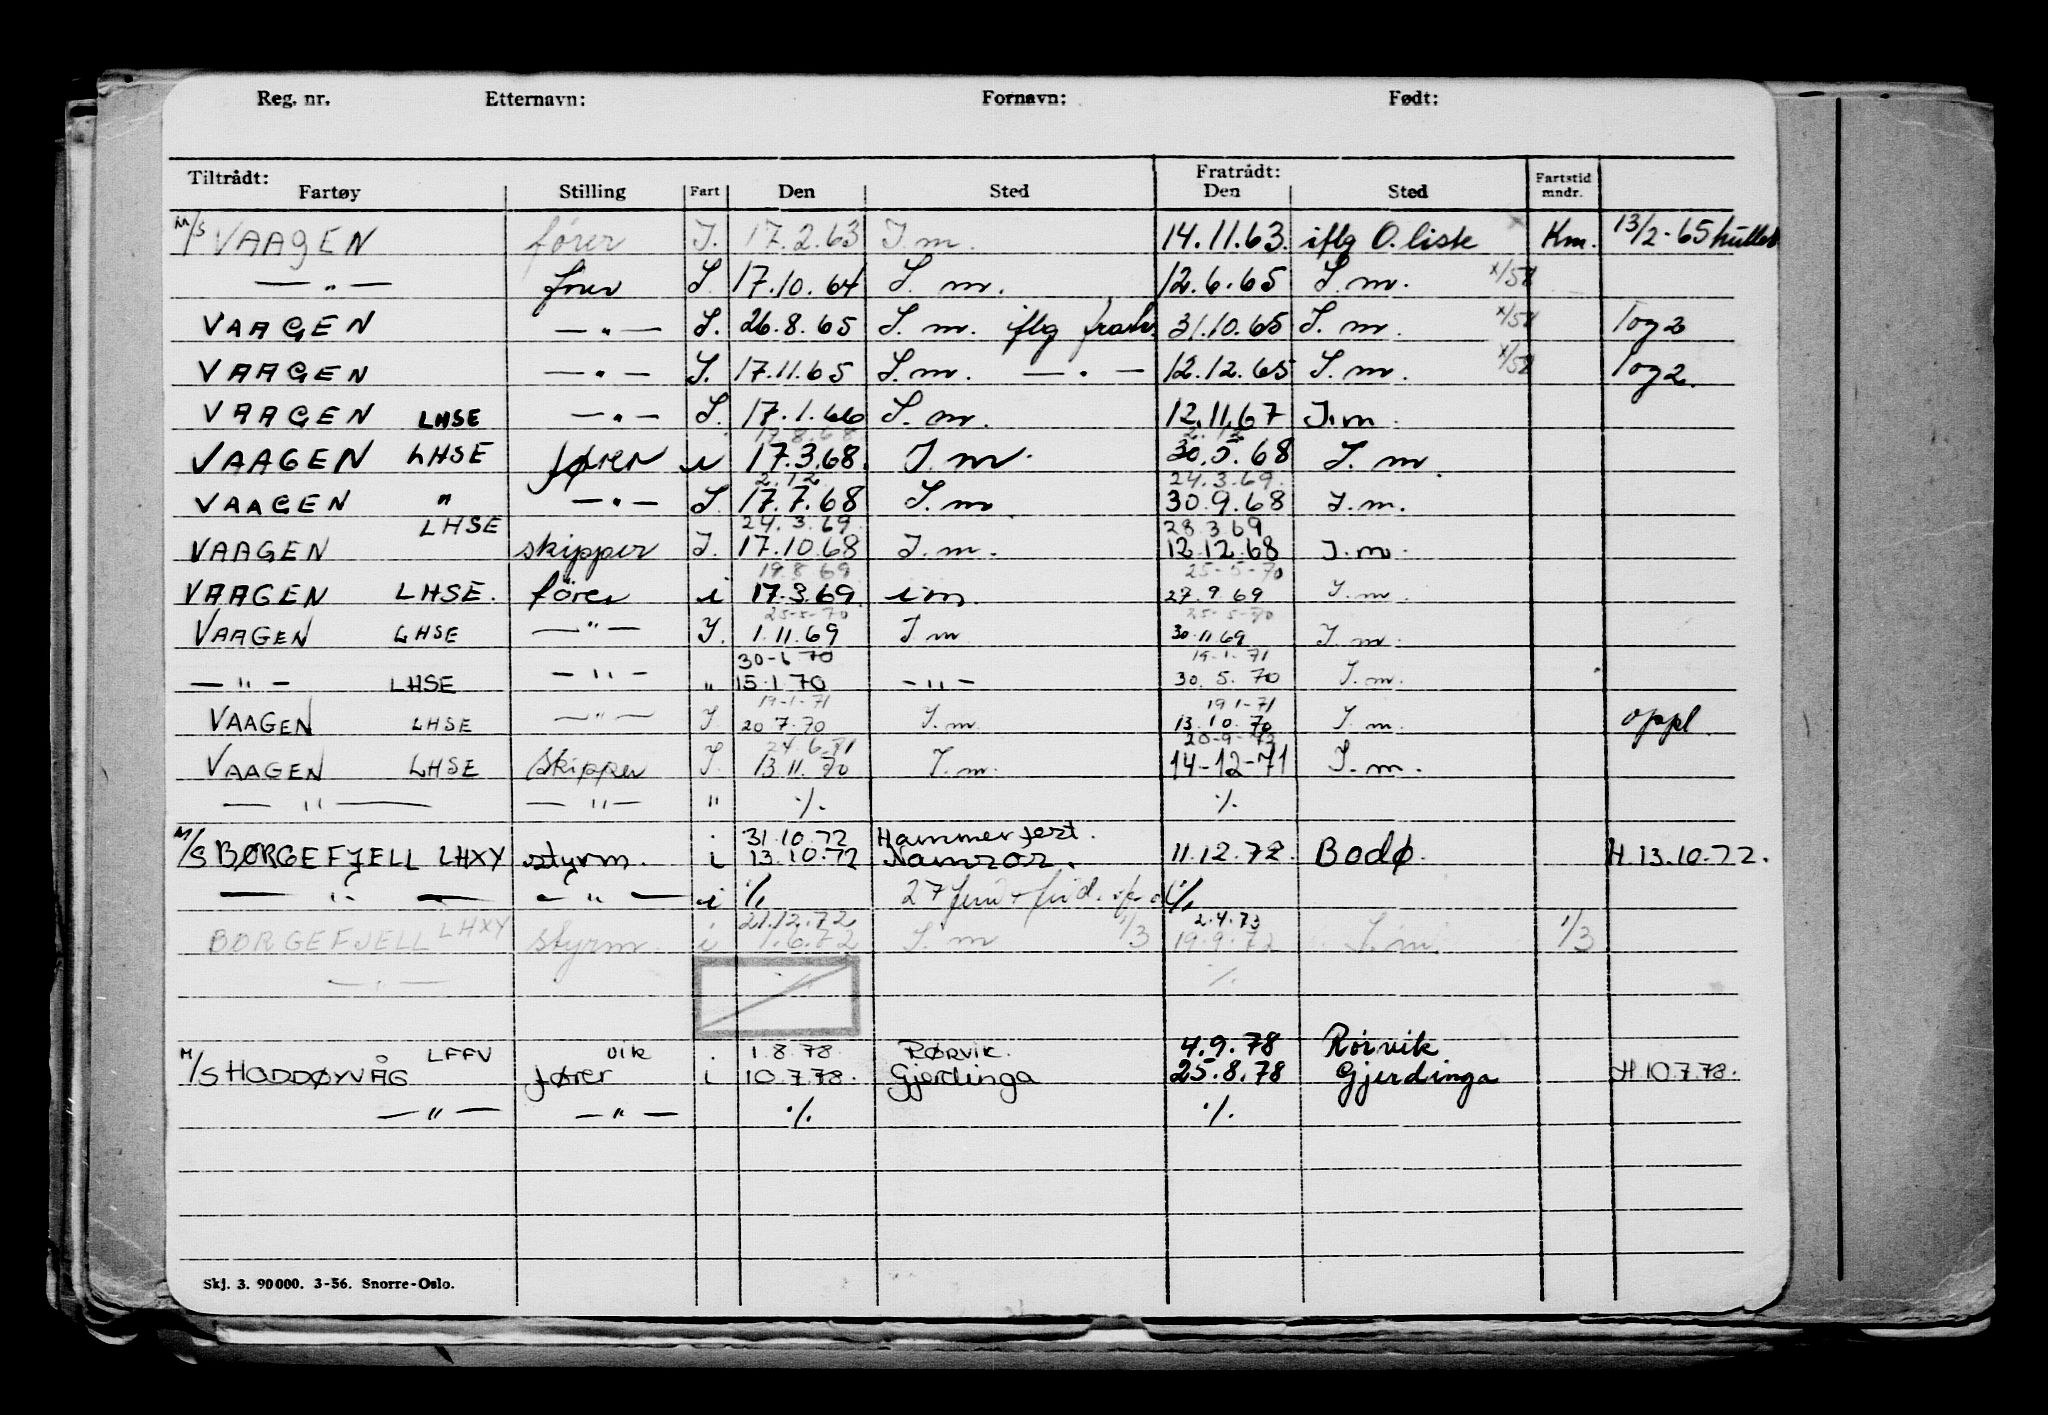 Reg. nr. Etternavn: Fornavn: Født:
Tiltrådt: Fratrådt:
Fartøy Stilling Fart Den Sted Den Sted Fartstid mndr.
M/S VAAGEN fører I. 17.2.63 I.m. 14.11.63. iflg O.liste Km. 13/2-65
—"— fører I. 17.10.64 I. m. 12.6.65 I.m. x/58
VAAGEN —"— I. 26.8.65 I. m. iflg 31.10.65 I. m. x/58 1 og 2
VAAGEN —"— I. 17.11.65 I.m. —"— 12.12.65 I. m. x/58 1 og 2.
VAAGEN LHSE —"— I. 17.1.66 I. m. 12.11.67 I.m.
17.8.68 2.12
VAAGEN LHSE fører i 17.3.68. I.m. 30.5.68 I. m.
2.12 24.3.69.
VAAGEN " —"— I. 17.7.68 I.m 30.9.68 I.m.
LHSE 24.3.69 28.3.69
VAAGEN skipper I. 17.10.68 I.m. 12.12.68 I.m.
19.8.69 25-5-70
VAAGEN LHSE. fører i 17.3.69. im. 27.9.69 I.m.
25-5-70 25-5-70
VAAGEN LHSE —"— I. 1.11.69 I m 30.11.69 I. m.
30-6 70 19-1-71
—"— LHSE —"— " 15.1.70 —"— 30. 5. 70 I.m.
19-1-71 19 1-71
VAAGEN LHSE —"— I. 20 7.70 I.m. 13.10.70 I.m. oppl.
24.6.71 20-9-72
VAAGEN LHSE Skipper I. 13.11.70 I.m. 14-12-71 I.m.
—"— —"— " ·/. ·/.
i 31.10.72 Hammerfest.
M/S BØRGEFJELL LHXY styrm. i 13.10.72 11.12.72. Bodø. H.13.10.72.
—"— —"— i ·/. 27 ·/.
LHXY 21.12.72 2.4.73
BØRGEFJELL styrm. i 1.6.72 I.m 1/3 19.9.72 I.m. 1/3
—"— ·/.
LFFV vik . 1.8.78. RØRVIK. 4.9.78 Rørvik
M/S HODDØYVÅG fører i 10.7.78. Gjerdinga 25.8.78 Gjerdinga H 10.7.78.
—"— —"— ·/. ·/.
Skj. 3. 90000. 3-56. Snorre-Oslo.